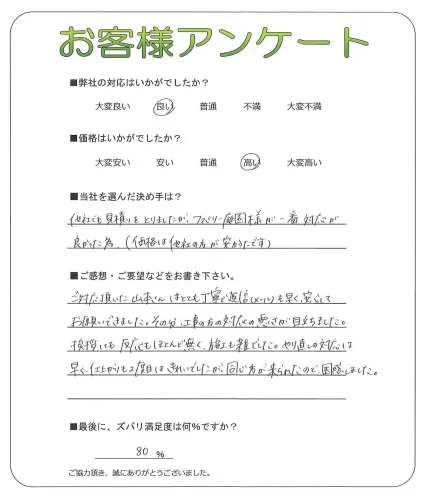 お客様アンケート
■弊社の対応はいかがでしたか？
大変良い 良い 普通 不満 大変不満
■価格はいかがでしたか？
大変安い 安い 普通 高い 大変高い
■当社を選んだ決め手は？
他社でも見積りをとりましたが、ファミリー庭園様が一番対応が
良かった為。(価格は他社の方が安かったです)
■ご感想・ご要望などをお書き下さい。
ご対応頂いた山本さんはとても丁寧で返信(メール)も早く、安心して
お願いできました。その分、工事の方の対応の悪さが目立ちました。
挨拶にも反応もほとんど無く、施工も雑でした。やり直しの対応は
早く、仕上がりも2度目はきれいでしたが、同じ方が来られたので、困惑しました。
■最後に、ズバリ満足度は何%ですか？
80 %
ご協力頂き、誠にありがとうございました。